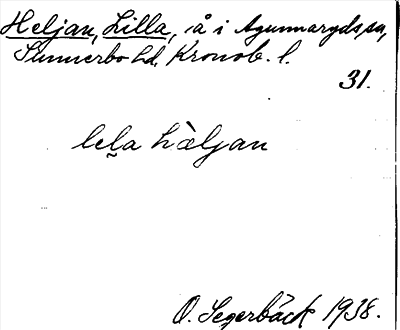 Heljan, Lilla, å i Agunnaryds sn,
Sunnerbo hd, Kronob. l.
31.
lela hàljan
O. Segerbäck 1938.